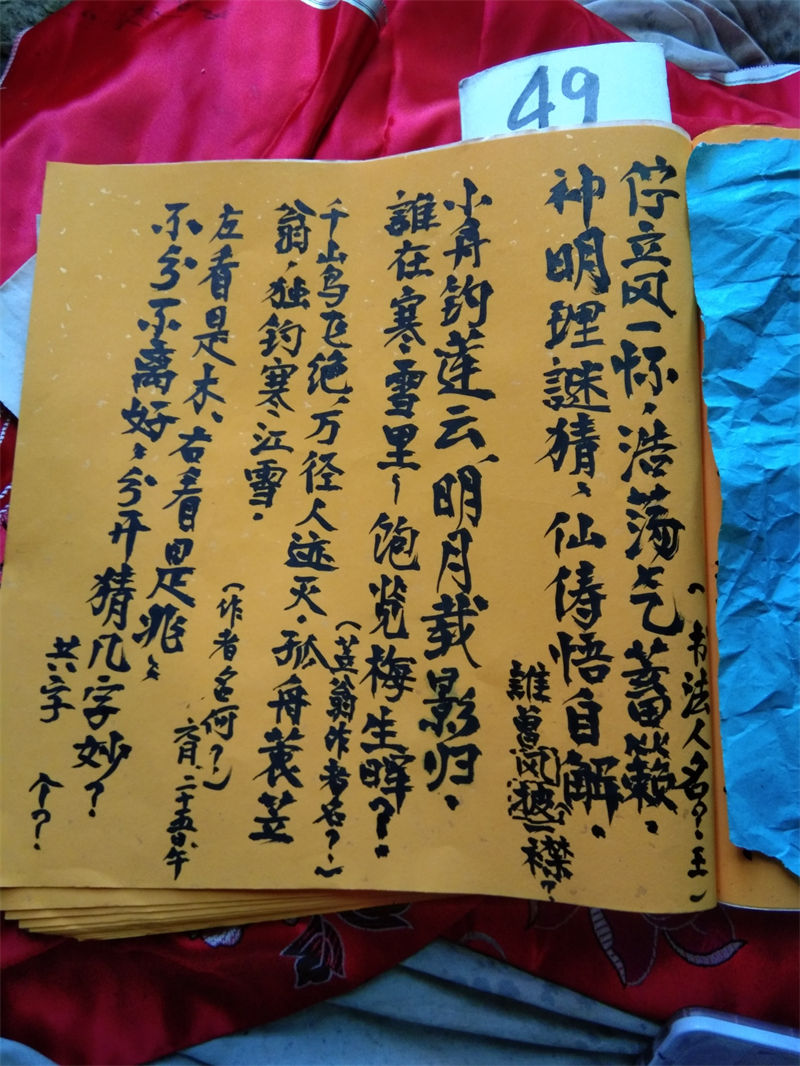 49
佇立风一怀、浩荡气蓄籁。
(书法人名？王)
神明理謎猜、仙俦悟自解。
誰
风
一襟？
小舟钓莲云、明月载影归。
誰在寒雪里～饱览梅生晖？
(蓑翁作者名？)
千山鸟飞绝、万径人迹灭。孤舟蓑笠
翁，独钓寒江雪。
(作者名何？)
左看是木、右看是兆、
六月、二十五日、午
不分不离好、分开猜几字妙？
共字
个？